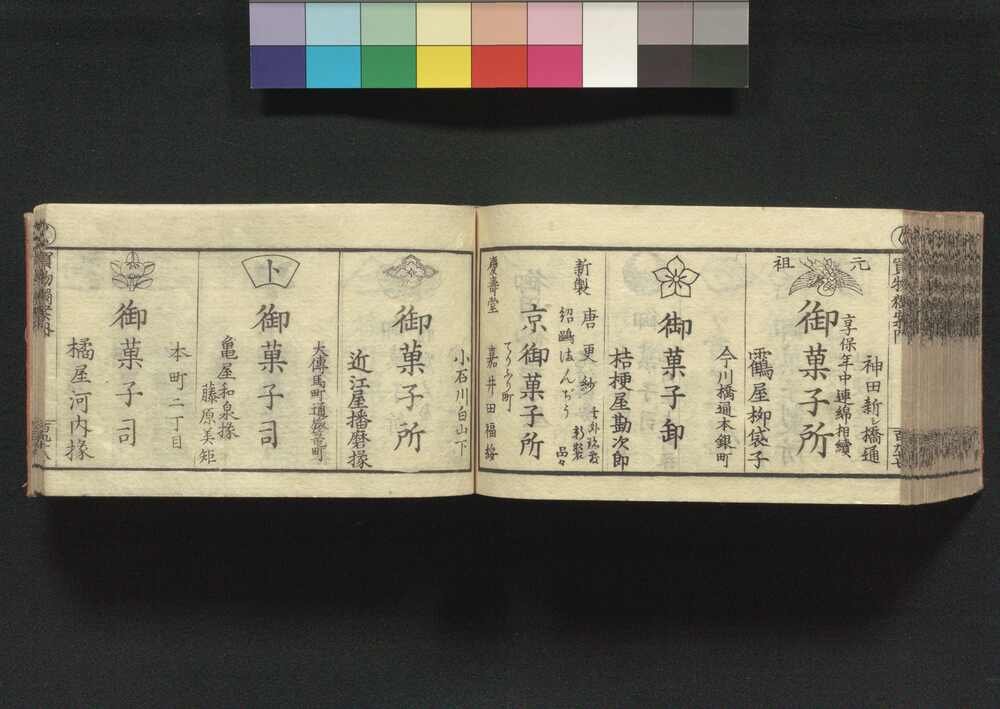 元祖
神田新シ橋通
享保年中連綿相續
御菓子所
靏屋柳袋子
今川橋通本銀町
御菓子卸
桔梗屋勘次郎
新製
唐更紗
紹鷗はんぢう
新製
品々
京御菓子所
てりふり町
慶壽堂
嘉井田福
小石川白山下
御菓子所
近江屋播磨掾
大傳馬町通塩町
卜
御菓子司
亀屋和泉掾
藤原美矩
本町二丁目
御菓子司
橘屋河内掾